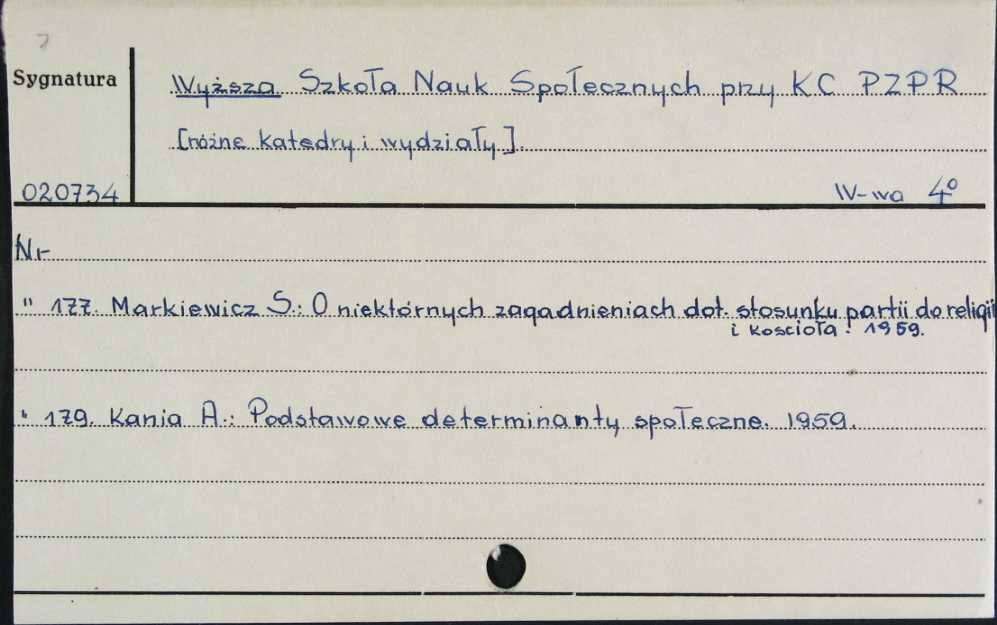 7
Sygnatura
Wyższa Szkoła Nauk Społecznych przy KC PZPR
[różne katedry i wydziały].
020734
W-wa 4°
Nr
" 177. Markiewicz S.: O niektórnych zagadnieniach dot. stosunku partii do religii
i kościoła. 1959.
" 179. Kania A.: Podstawowe determinanty społeczne. 1959.